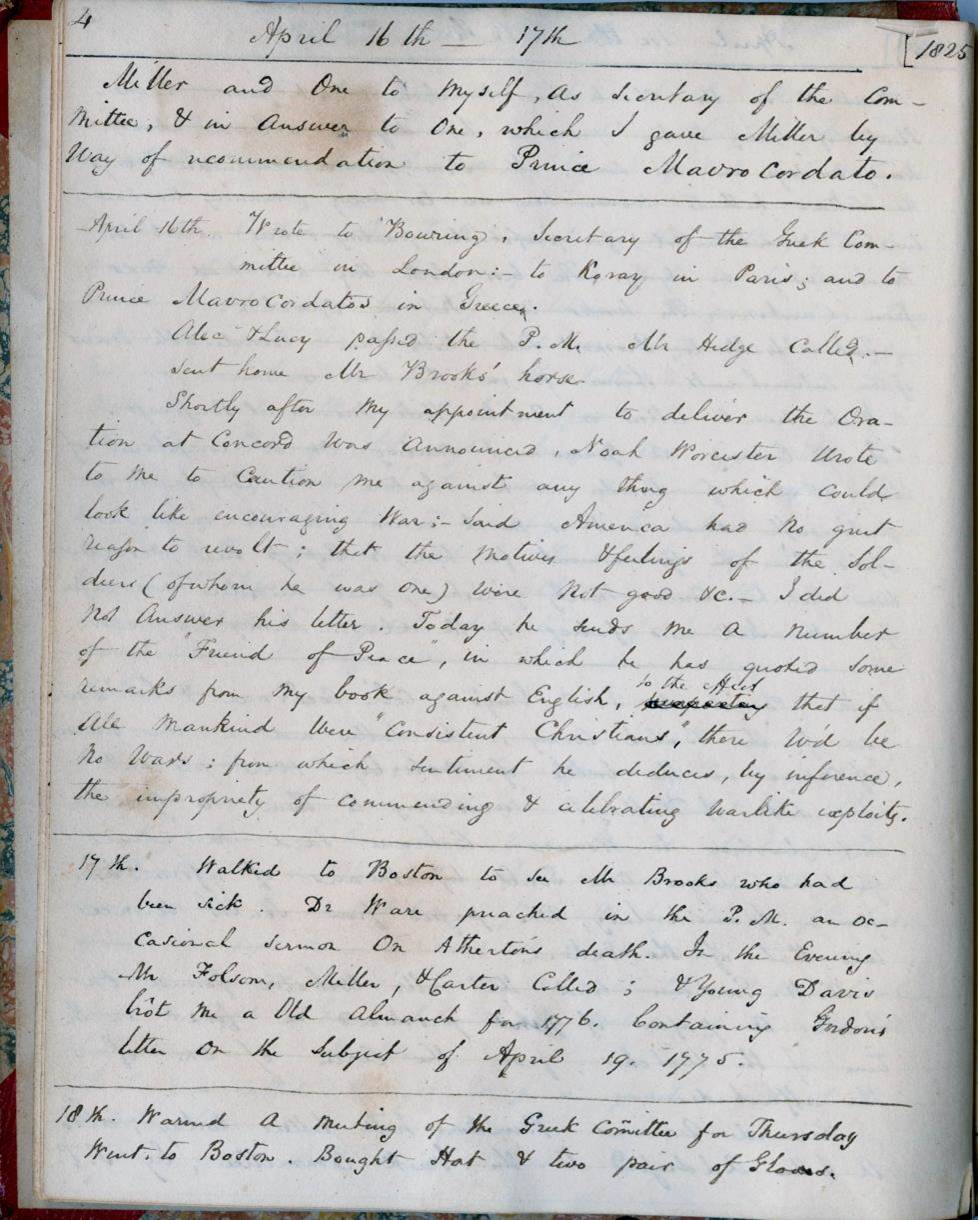 4
April 16th — 17th [1825
Miller and One to myself, As Secretary of the Com-
mittee, & in Answer to One, which I gave Miller by
Way of recommendation to Prince Mavrocordato.
April 16th. Wrote to Bowring, Secretary of the Greek Com-
mittee in London:- to Koray in Paris; and to
Prince Mavrocordatos in Greece.
Alec & Lucy passed the P.M. Mr Hedge Called.—
Sent home Mr Brooks' horse.
Shortly after my appointment to deliver the Ora-
tion at Concord was Announced, Noah Worcester Wrote
to me to Caution me against any thing which could
look like encouraging War:- Said America had no great
reason to revolt; that the motives & feelings of the Sol-
diers (of whom he was one) were not good &c.— I did
not Answer his letter. Today he sends me a number
of the "Friend of Peace", in which he has quoted some
remarks from my book against English, to the effect that if
All Mankind were "Consistent Christians," there wd be
no Wars: from which sentiment he deduces, by inference,
the impropriety of commending & celebrating warlike exploits.
17th. Walked to Boston to see Mr Brooks who had
been sick. Dr Ware preached in the P.M. an oc-
casional sermon On Atherton's death. In the Evening
Mr Folsom, Miller, & Carter Called; & Young Davis
brôt me a Old Almanck for 1776. Containing Gordon's
letter on the Subject of April 19. 1775.
18th. Warned A meeting of the Greek Com̄ittee for Thursday
Went to Boston. Bought Hat & two pair of Gloves.